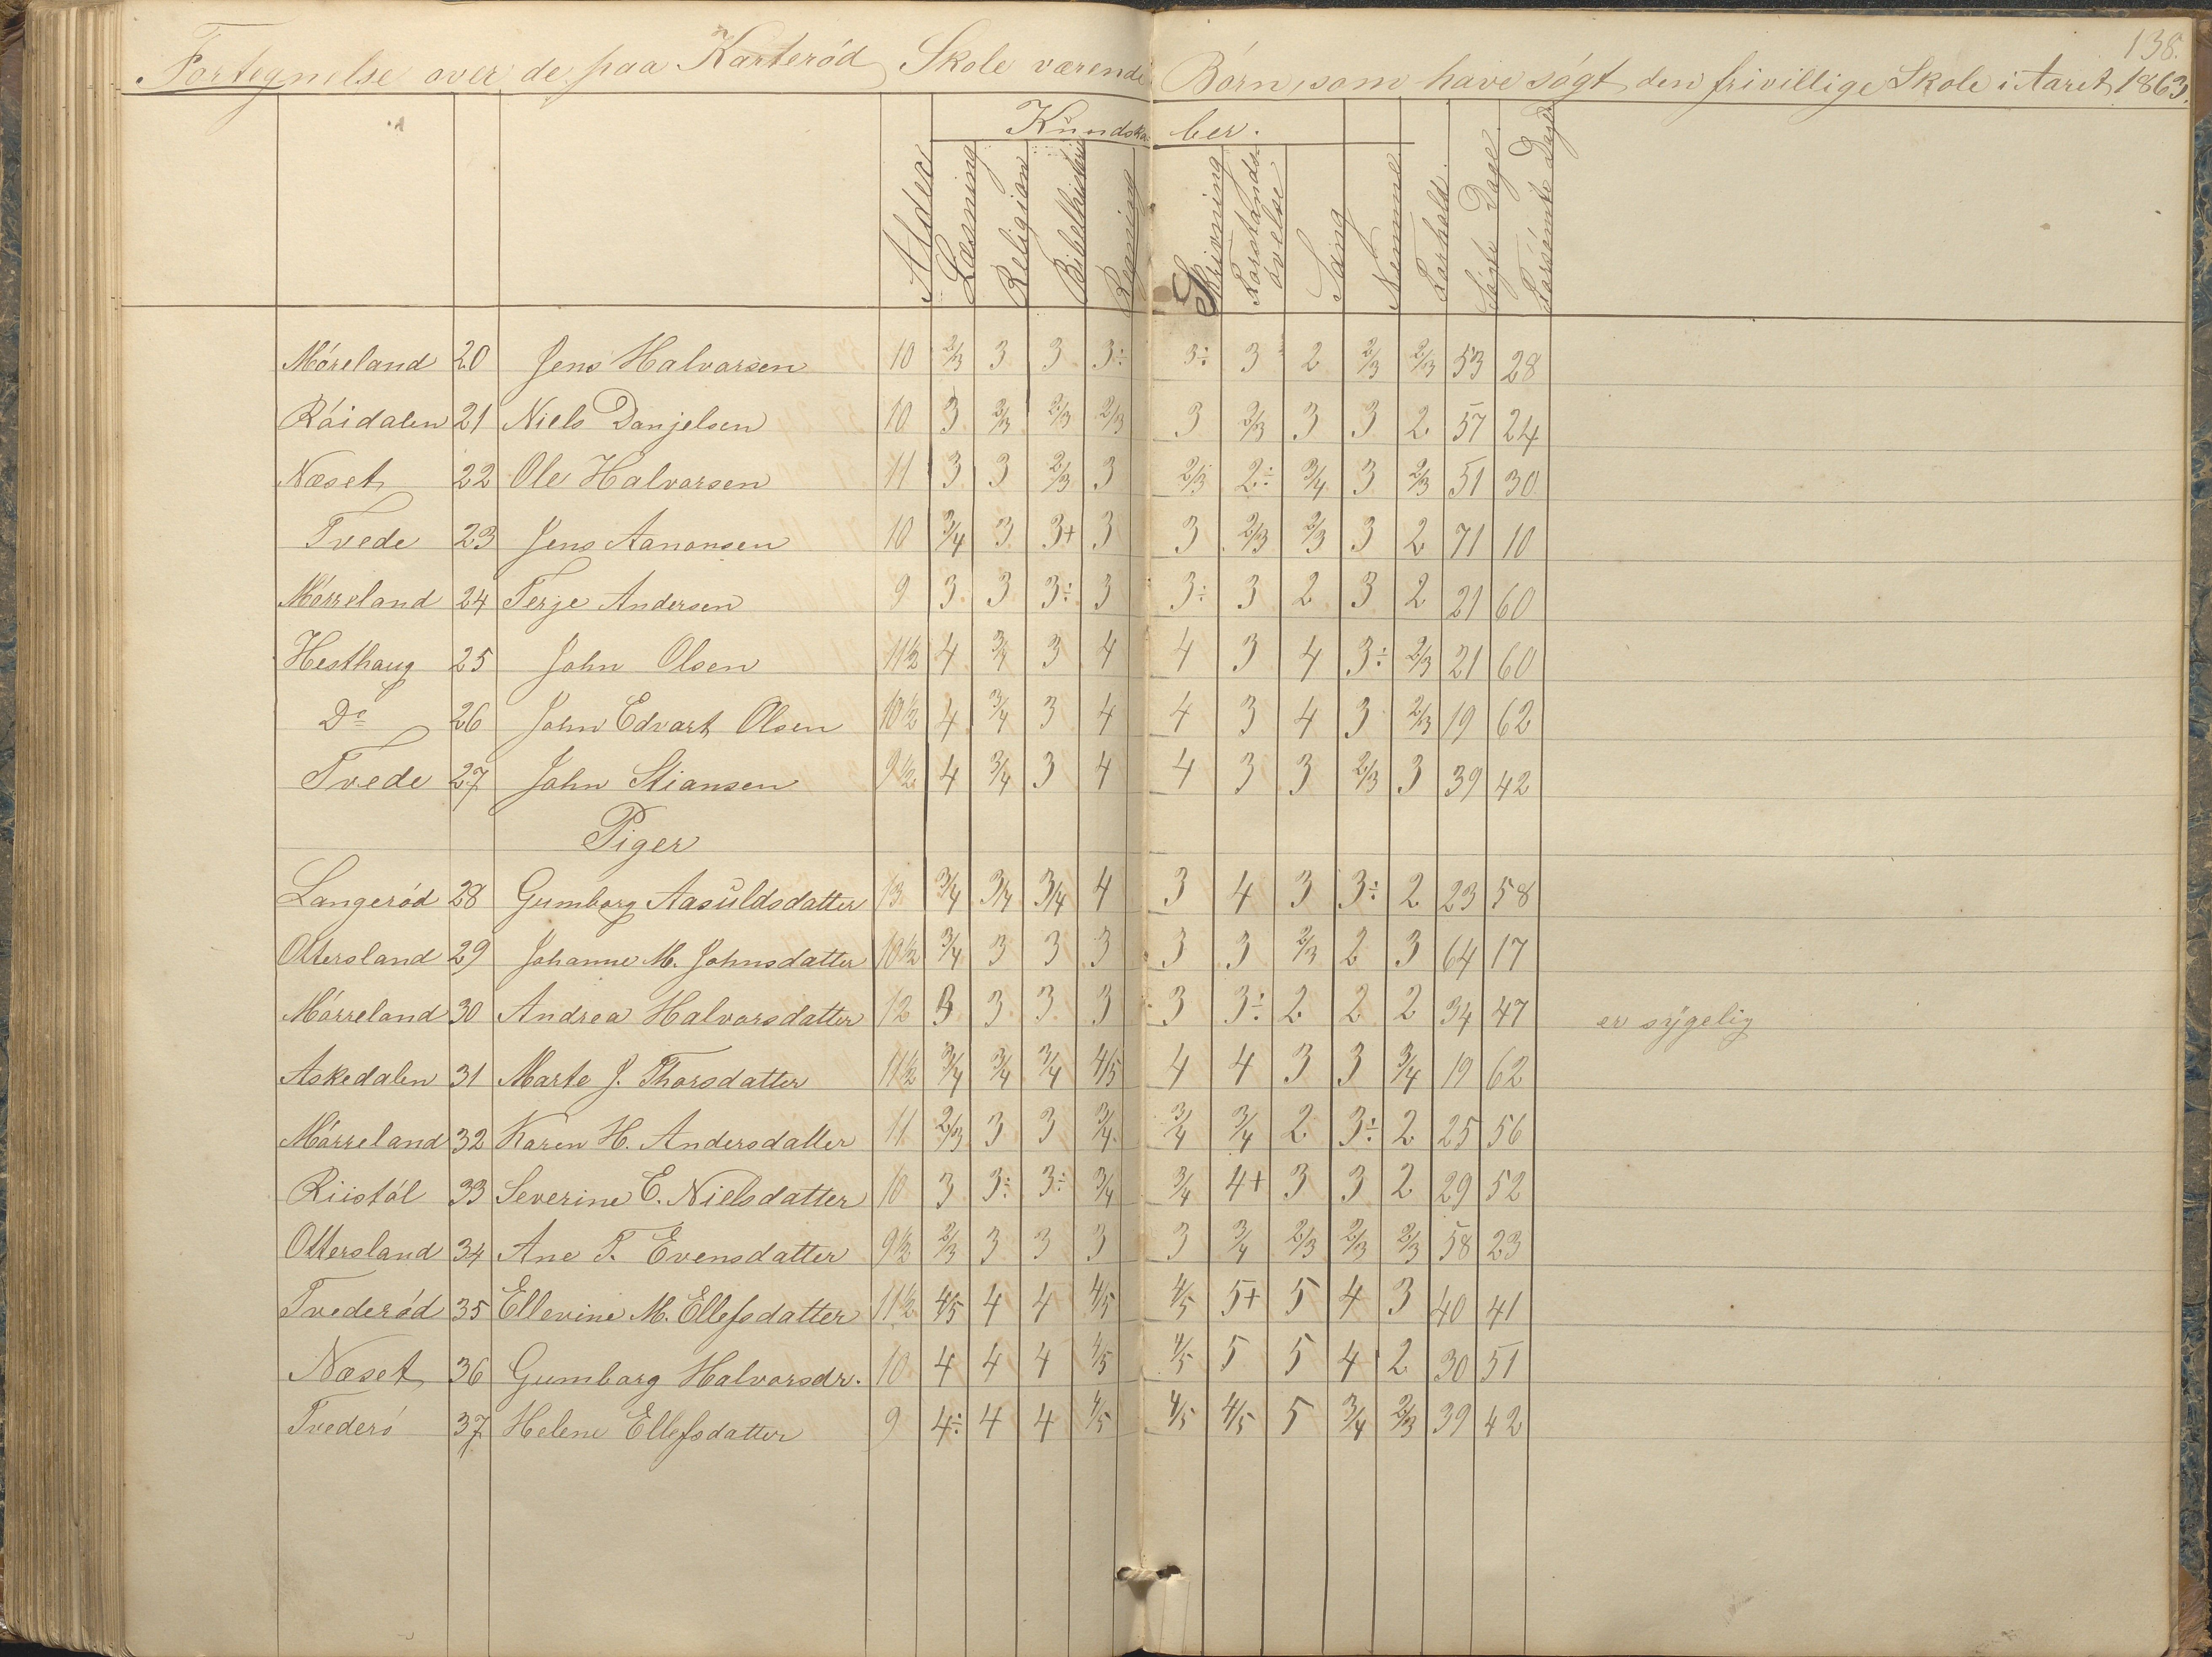 138.
Fortegnelse over de paa Karterød Skole værende Børn, som have søgt den frivillige Skole i Aaret 1863.
Kundskaber.
Alder Læsning Religion Bibelhistorie Regning Skrivning Forstandsøvelse Sang Nemme Forhold Søgte Dage Forsömte Dage
Møreland 20 Jens Halvorsen 10 2/3 3 3 3÷ 3÷ 3 2 2/3 2/3 53 28
Røidalen 21 Niels Danjelsen 10 3 2/3 2/3 2/3 3 2/3 3 3 2 57 24
Næset 22 Ole Halvorsen 11 3 3 2/3 3 2/3 2÷ 3/4 3 2/3 51 30
Tvede 23 Jens Aanonsen 10 3/4 3 3+ 3 3 2/3 2/3 3 2 71 10
Mørreland 24 Terje Andersen 9 3 3 3÷ 3 3÷ 3 2 3 2 21 60
Hesthaug 25 John Olsen 11½ 4 3/4 3 4 4 3 4 3÷ 2/3 21 60
Do 26 John Edvart Olsen 10½ 4 3/4 3 4 4 3 4 3 2/3 19 62
Tvede 27 John Stiansen 9½ 4 3/4 3 4 4 3 3 2/3 3 39 42
Piger
Langerød 28 Gumborg Aasuldsdatter 13 3/4 3/4 3/4 4 3 4 3 3÷ 2 23 58
Ottersland 29 Johanne M. Johnsdatter 10½ 3/4 3 3 3 3 3 2/3 2 3 64 17
Mørreland 30 Andrea Halvorsdatter 12 3 3 3 3 3 3÷ 2 2 2 34 47 er sygelig
Askedalen 31 Marte J. Thorsdatter 11½ 3/4 3/4 3/4 4/5 4 4 3 3 3/4 19 62
Mørreland 32 Karen H. Andersdatter 11 2/3 3 3 3/4 3/4 3/4 2 3÷ 2 25 56
Riistøl 33 Severine E. Nielsdatter 10 3 3÷ 3÷ 3/4 3/4 4+ 3 3 2 29 52
Ottersland 34 Ane T. Evensdatter 9½ 2/3 3 3 3 3 3/4 2/3 2/3 2/3 58 23
Tvederød 35 Ellevine M. Ellefsdatter 11½ 4/5 4 4 4/5 4/5 5+ 5 4 3 40 41
Næset 36 Gumborg Halvorsdr. 10 4 4 4 4/5 4/5 5 5 4 2 30 51
Tvederö 37 Helene Ellefsdatter 9 4÷ 4 4 4/5 4/5 4/5 5 3/4 2/3 39 42